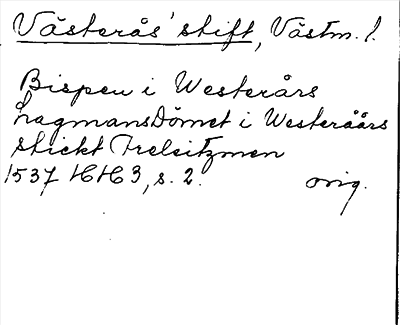 Västerås' stift, Västm. l.
Bispen i Westerårs
LagmansDömet i Westeråårs
stickt Frelsitzmen
1537 HH 3, s. 2. orig.